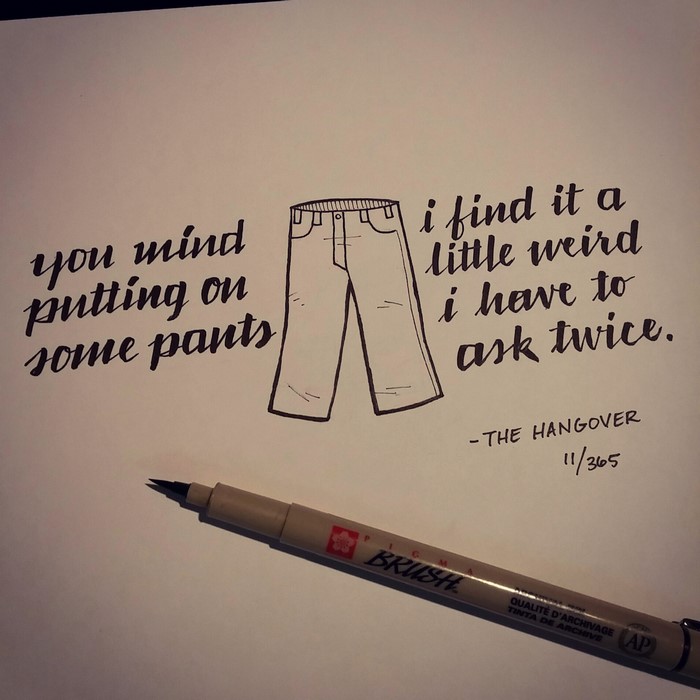 you mind
putting on
some pants
i find it a
little weird
i have to
ask twice.
-THE HANGOVER
11/365
PIGMA
BRUSH
QUALITÉ D'ARCHIVAGE
TINTA DE ARCHIVE
AP